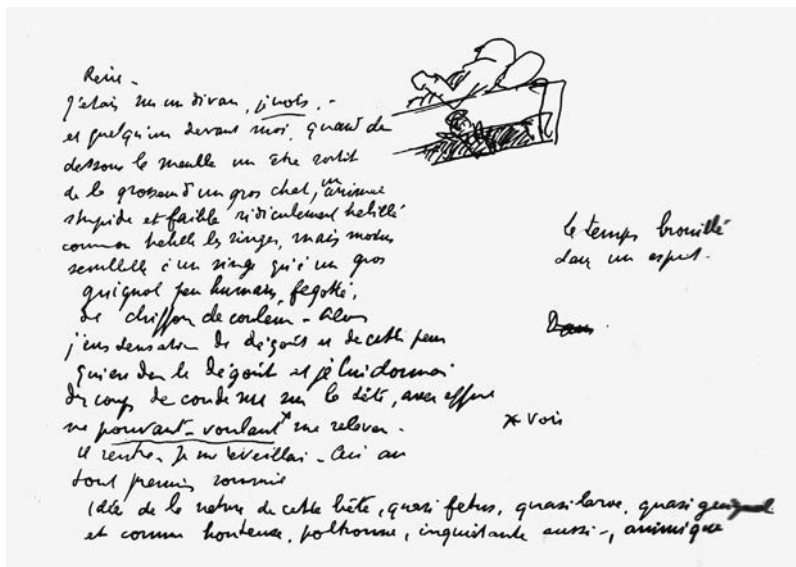 Rêve -
J'étais sur un divan, -
et quelqu'un devant moi, quand de
dessous le meuble un être sortit
de la grosseur d'un gros chat, un
stupide et faible ridiculement habillé
comme on habille les singes, mais moins
semblable à un singe qu'à un gros
guignol peu humain, fagotté,
de chiffon de couleur - Alors
j'eus sensation de dégoût et de cette peur
qui est dans le dégoût et je lui donnai
des coups de coude sur la tête, avec effort
ne pouvant-voulant* me relever -
Il rentre. Je m'éveillai - Ceci au
tout premier sommeil
Idée de la nature de cette bête, quasi fetus, quasi larve, quasi guignol
et comme honteuse, poltronne, inquiétante aussi -, animique
le temps brouillé
dans un esprit.
* Vois